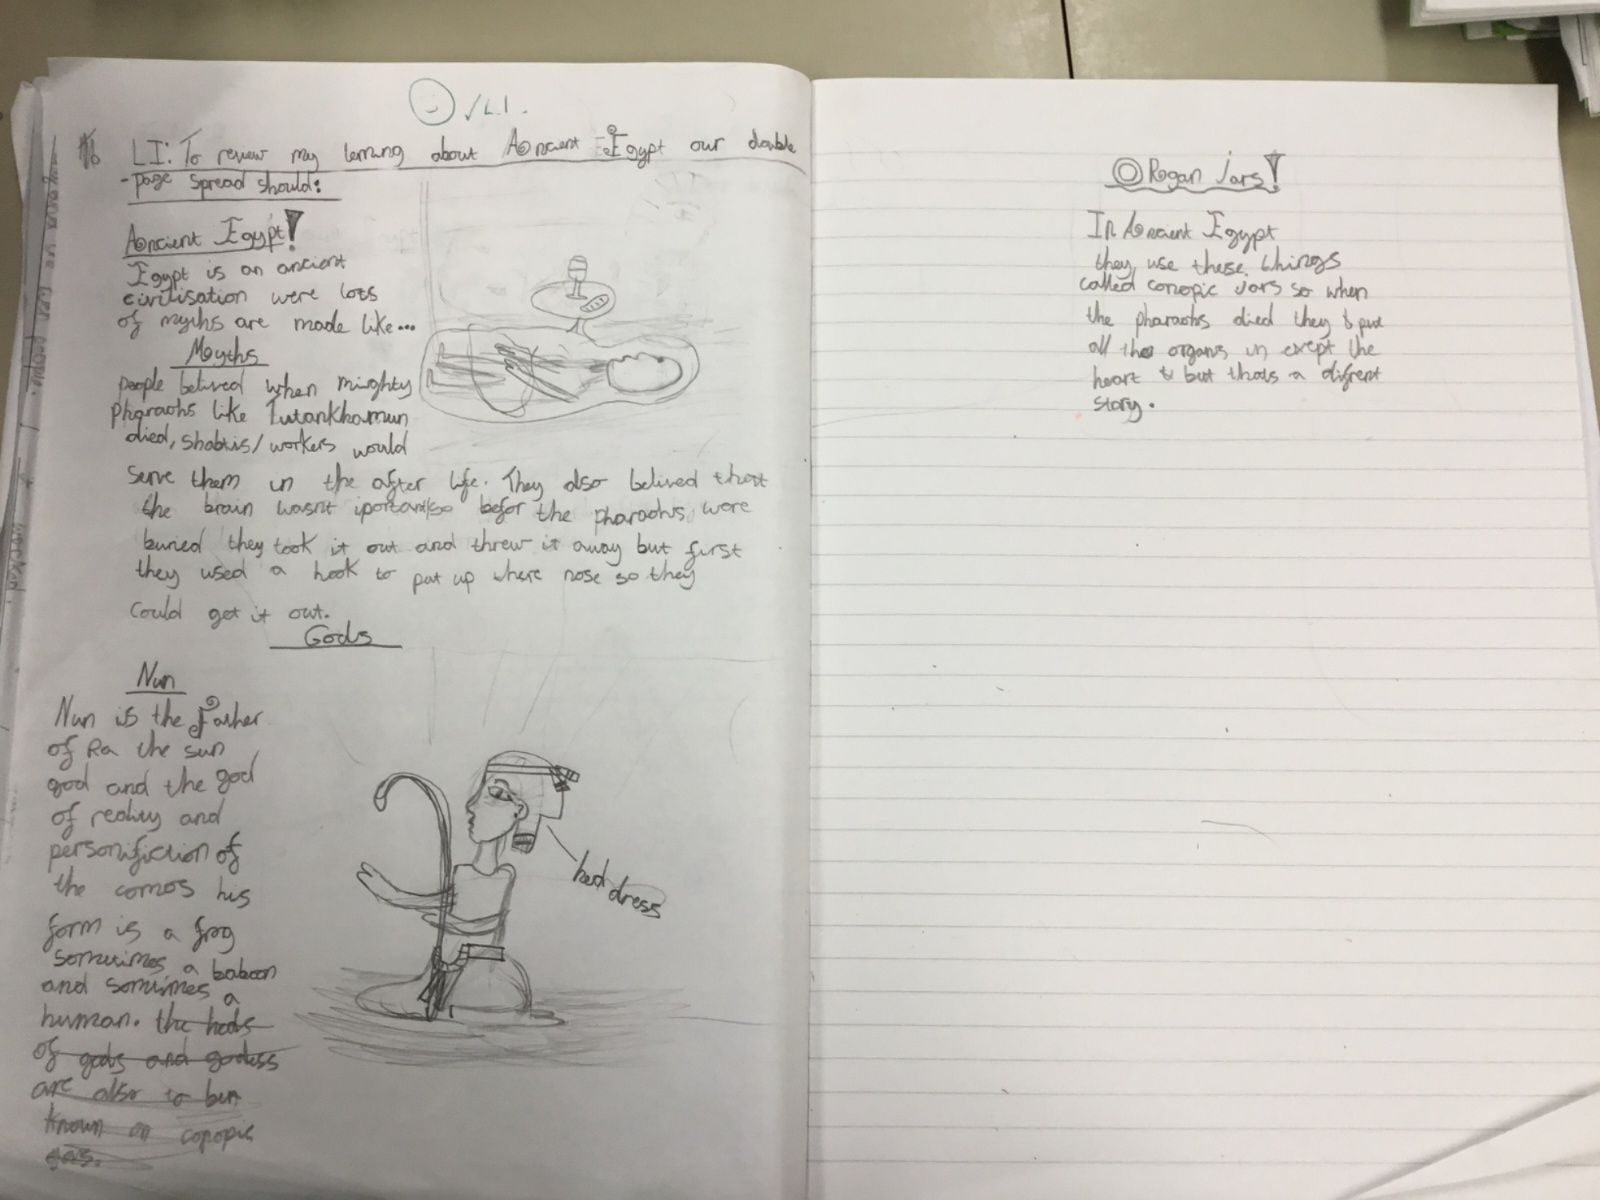 ✓L.I.
LI: To review my lerning about Ancient Egypt our double
-page spread should:
Ancient Egypt!
Egypt is an ancient
civilisation were lots
of myths are made like...
Myths
people belived when mighty
pharaohs like Tutankhamun
died, shabtis/workers would
serve them in the after life. They also belived that
the brain wasnt iportant so befor the pharaohs were
buried they took it out and threw it away but first
they used a hook to put up where nose so they
could get it out.
Gods
Nun
Nun is the Father
of Ra the sun
god and the god
of reality and
personifiction of
the comos his
form is a frog
sometimes a baboon
and somtimes a
human. the heds
of gods and godess
are also to be
known on
head dress
Organ Jars!
In Ancient Egypt
they use these things
called conopic Jars so when
the pharaohs died they put
all the organs in exept the
heart but thats a difrent
story.